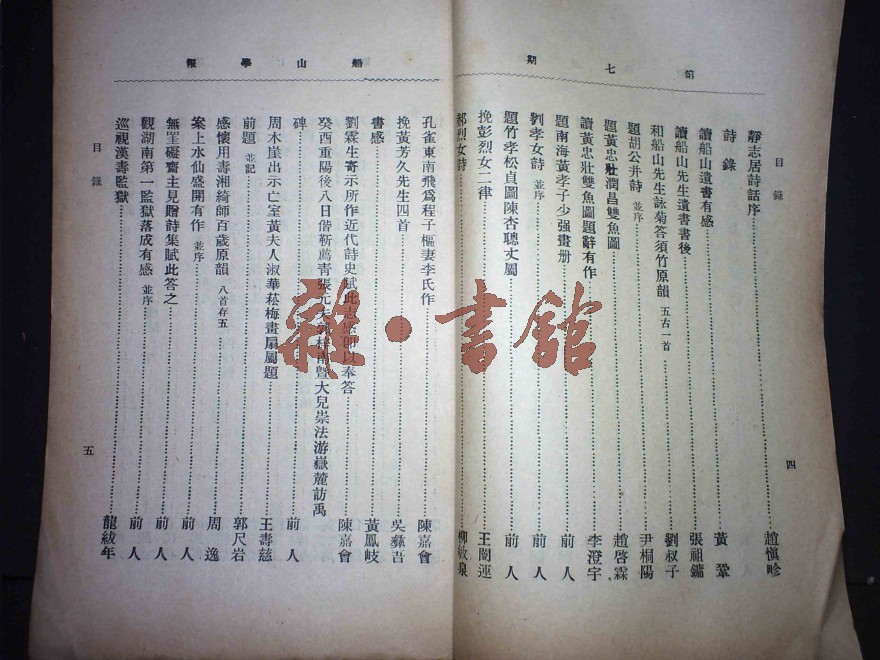 第七期
目錄
靜志居詩話序 趙愼畛
詩錄
讀船山遺書有感 黃鞏
讀船山先生遺書書後 張祖鏞
和船山先生詠菊答須竹原韻 五古一首 劉叔子
題胡公井詩 並序 尹桐陽
題黃忠壯潤昌雙魚圖 趙啓霖
讀黃忠壯雙魚圖題辭有作 李澄宇
題南海黃孝子少强畫册 前人
劉孝女詩 並序 前人
題竹孝松貞圖陳杏聰丈屬 前人
挽彭烈女二律 王闓運
郝烈女詩 柳敏泉
四
船山學報
孔雀東南飛爲程子樞妻李氏作 陳嘉會
挽黃芳久先生四首 吳彝吾
書感 黃鳳岐
劉霖生寄示所作近代詩史賦此志感卽以奉答 陳嘉會
癸酉重陽後八日偕靳薦靑張元夫 南曁大兒崇法游嶽麓訪禹
碑 前人
周木崖出示亡室黃夫人淑華菘梅畫扇屬題 王壽慈
前題 並記 郭尺岩
感懷用壽湘綺師百歲原韻 八首存五 周逸
案上水仙盛開有作 並序 前人
無罣礙齋主見贈詩集賦此答之 前人
觀湖南第一監獄落成有感 並序 前人
巡視漢壽監獄 龍紱年
目錄
五
雜·書館